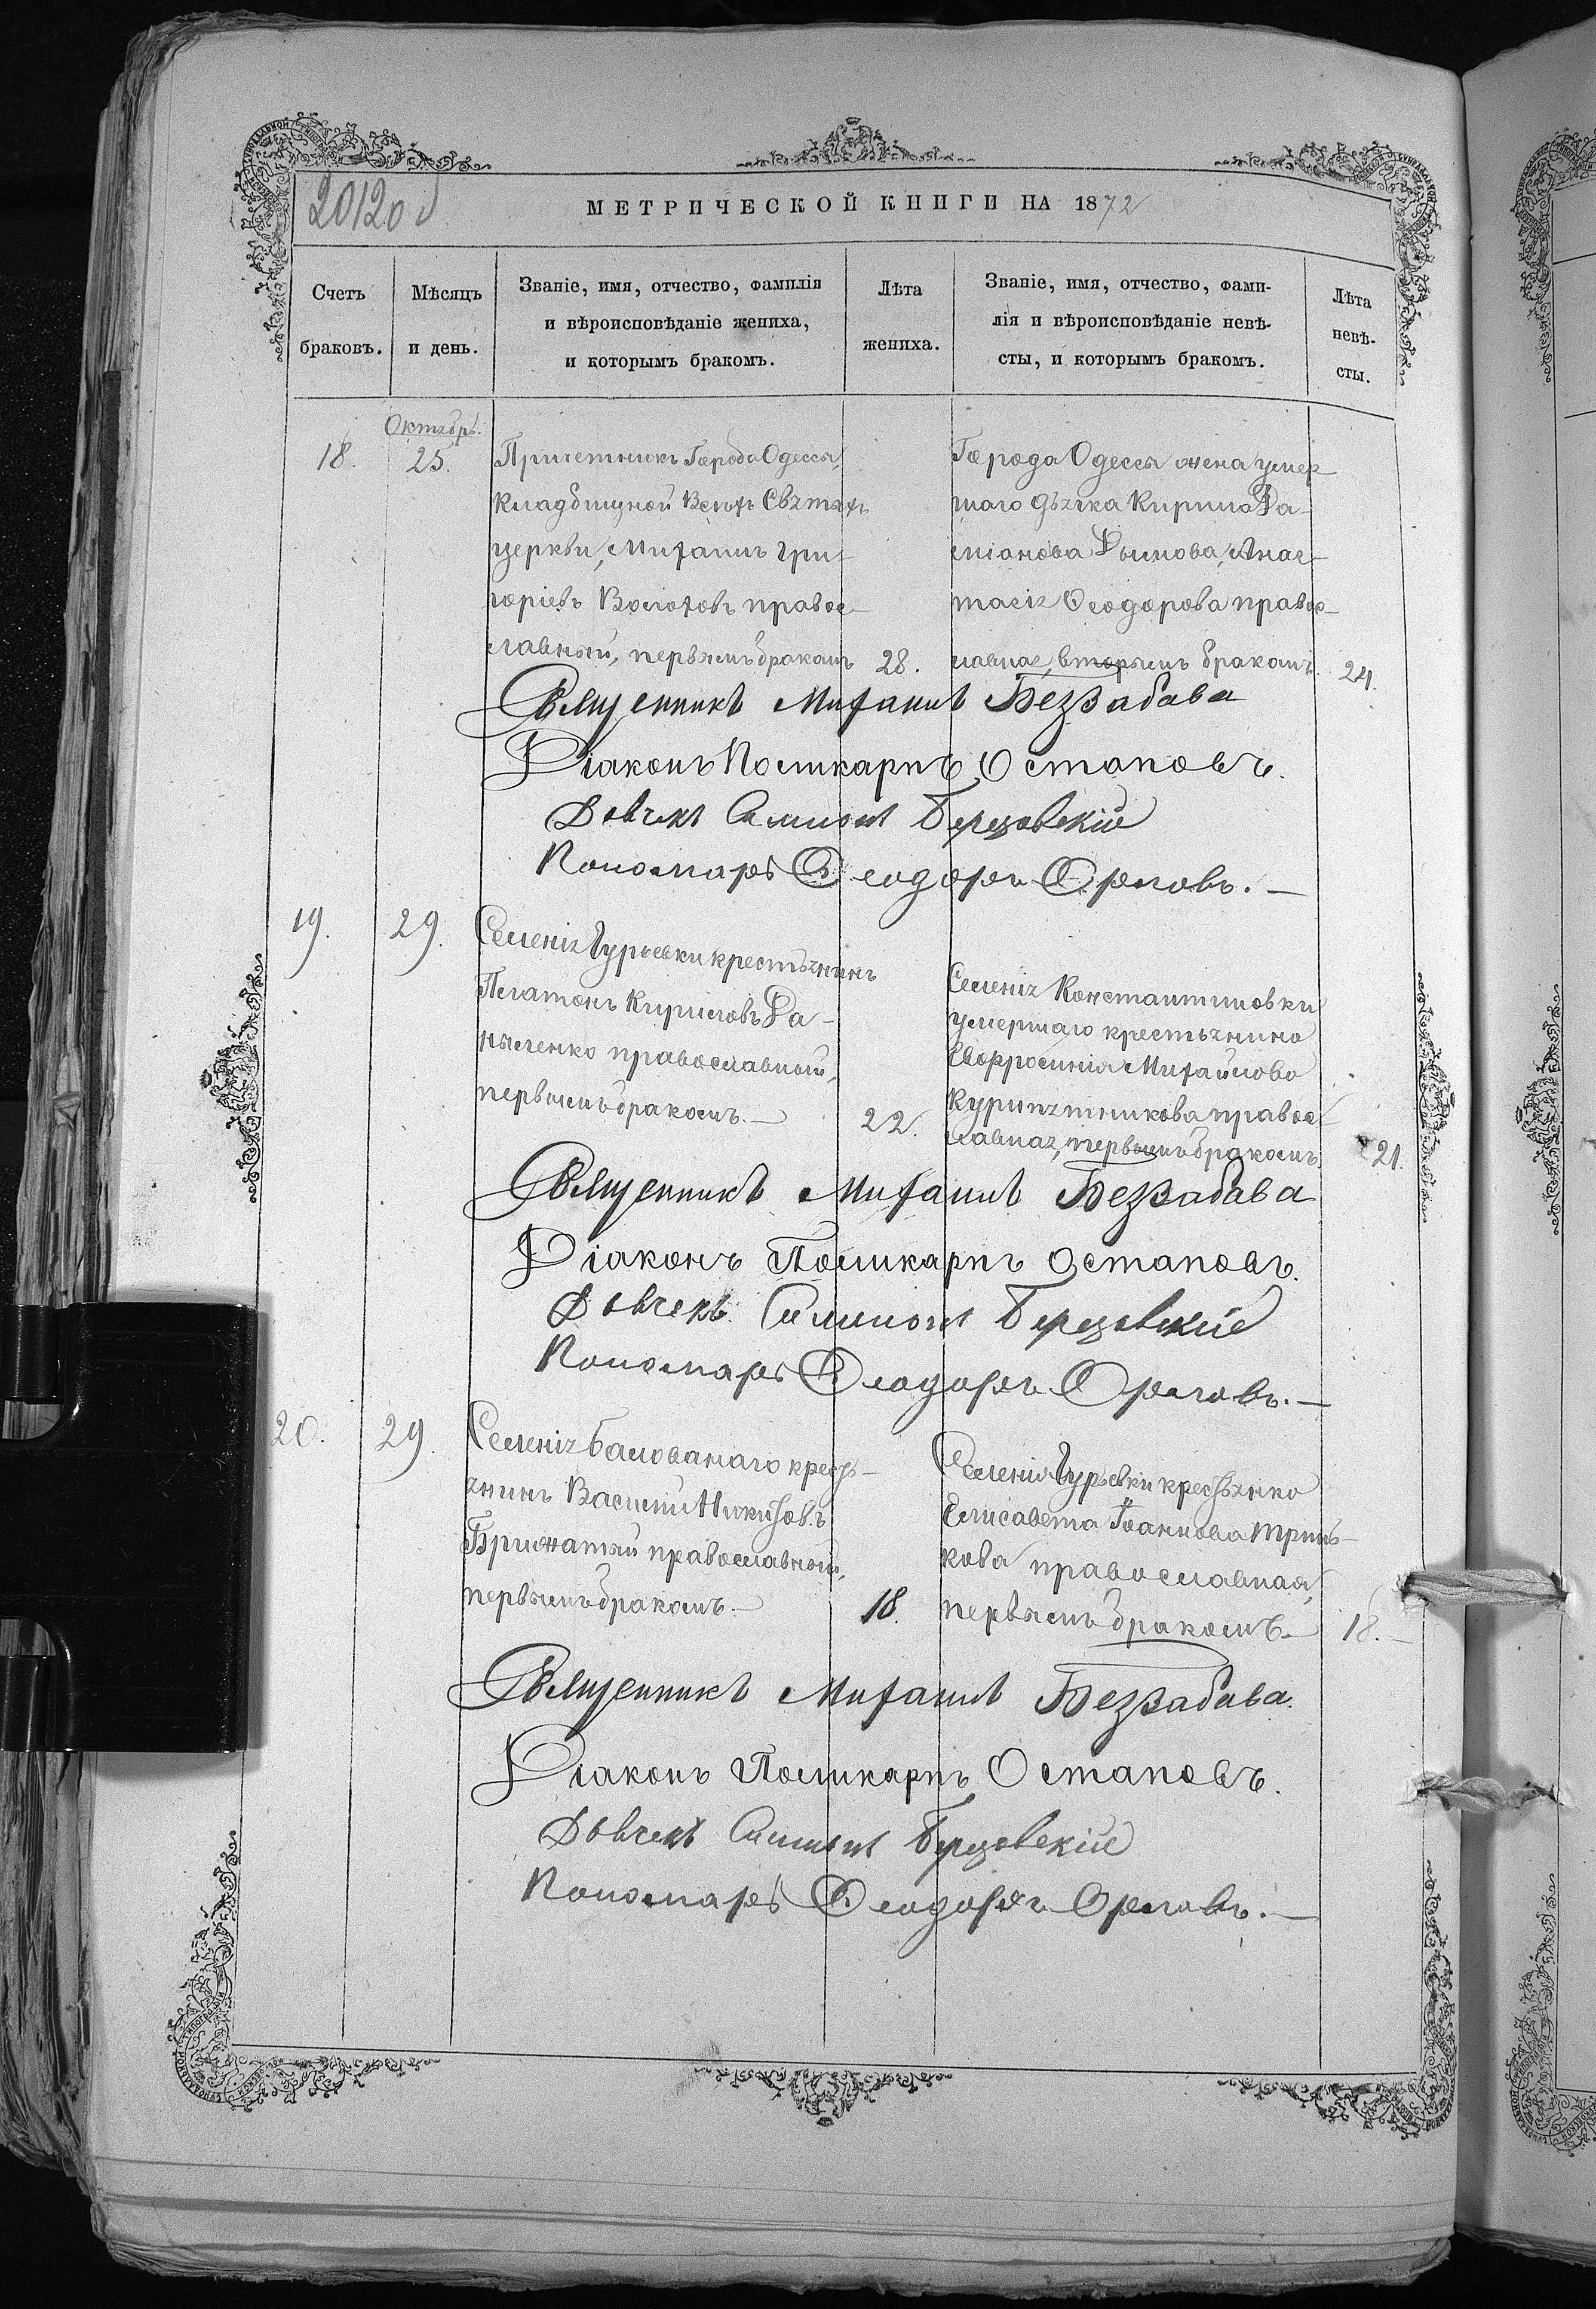 20120
МЕТРИЧЕСКОЙ КНИГИ НА 1872
Счетъ браковъ.
Мѣсяцъ и день.
Званіе, имя, отчество, фамилія
и вѣроисповѣданіе жениха,
и которымъ бракомъ.
Лѣта жениха.
Званіе, имя, отчество, фами-
лія и вѣроисповѣданіе невѣ-
сты, и которымъ бракомъ.
Лѣта невѣ-
сты.
Октябрь.
18. 25.
Причетникъ Города Одессы,
Кладбищной Всѣхъ Святыхъ
церкви, Михаилъ Гри-
горіевъ Волоховъ правос-
лавный, первымъ бракомъ 28.
Города Одессы жена умер-
шаго дьячка Кирила Да-
міанова Дымова, Анас-
тасія Ѳеодорова правос-
лавная, вторымъ бракомъ 24.
Священникъ Михаилъ Беззабава
Діаконъ Поликарпъ Остаповъ.
Дьячекъ Симеонъ Березовскій
Пономарь Ѳеодоръ Орловъ.—
19. 29.
Селенія Гурьевки крестьянинъ
Платонъ Кириловъ Да-
ниленко православный,
первымъ бракомъ.— 22.
Селенія Константиновки
умершаго крестьянина
Евфросинія Михайлова
православ-
лавная, первымъ бракомъ. 21.
Священникъ Михаилъ Беззабава
Діаконъ Поликарпъ Остаповъ.
Дьячекъ Симеонъ Березовскій
Пономарь Ѳеодоръ Орловъ.—
20. 29.
Селенія Балованаго кресть-
янинъ Василий Никифовъ
Брижатый православный,
первымъ бракомъ.— 18.
Селенія Гурьевки крестьянка
Елисавета Іоаннова Триш-
кова православная,
первымъ бракомъ.— 18.—
Священникъ Михаилъ Беззабава.
Діаконъ Поликарпъ Остаповъ.
Дьячекъ Симеонъ Березовскій
Пономарь Ѳеодоръ Орловъ.—